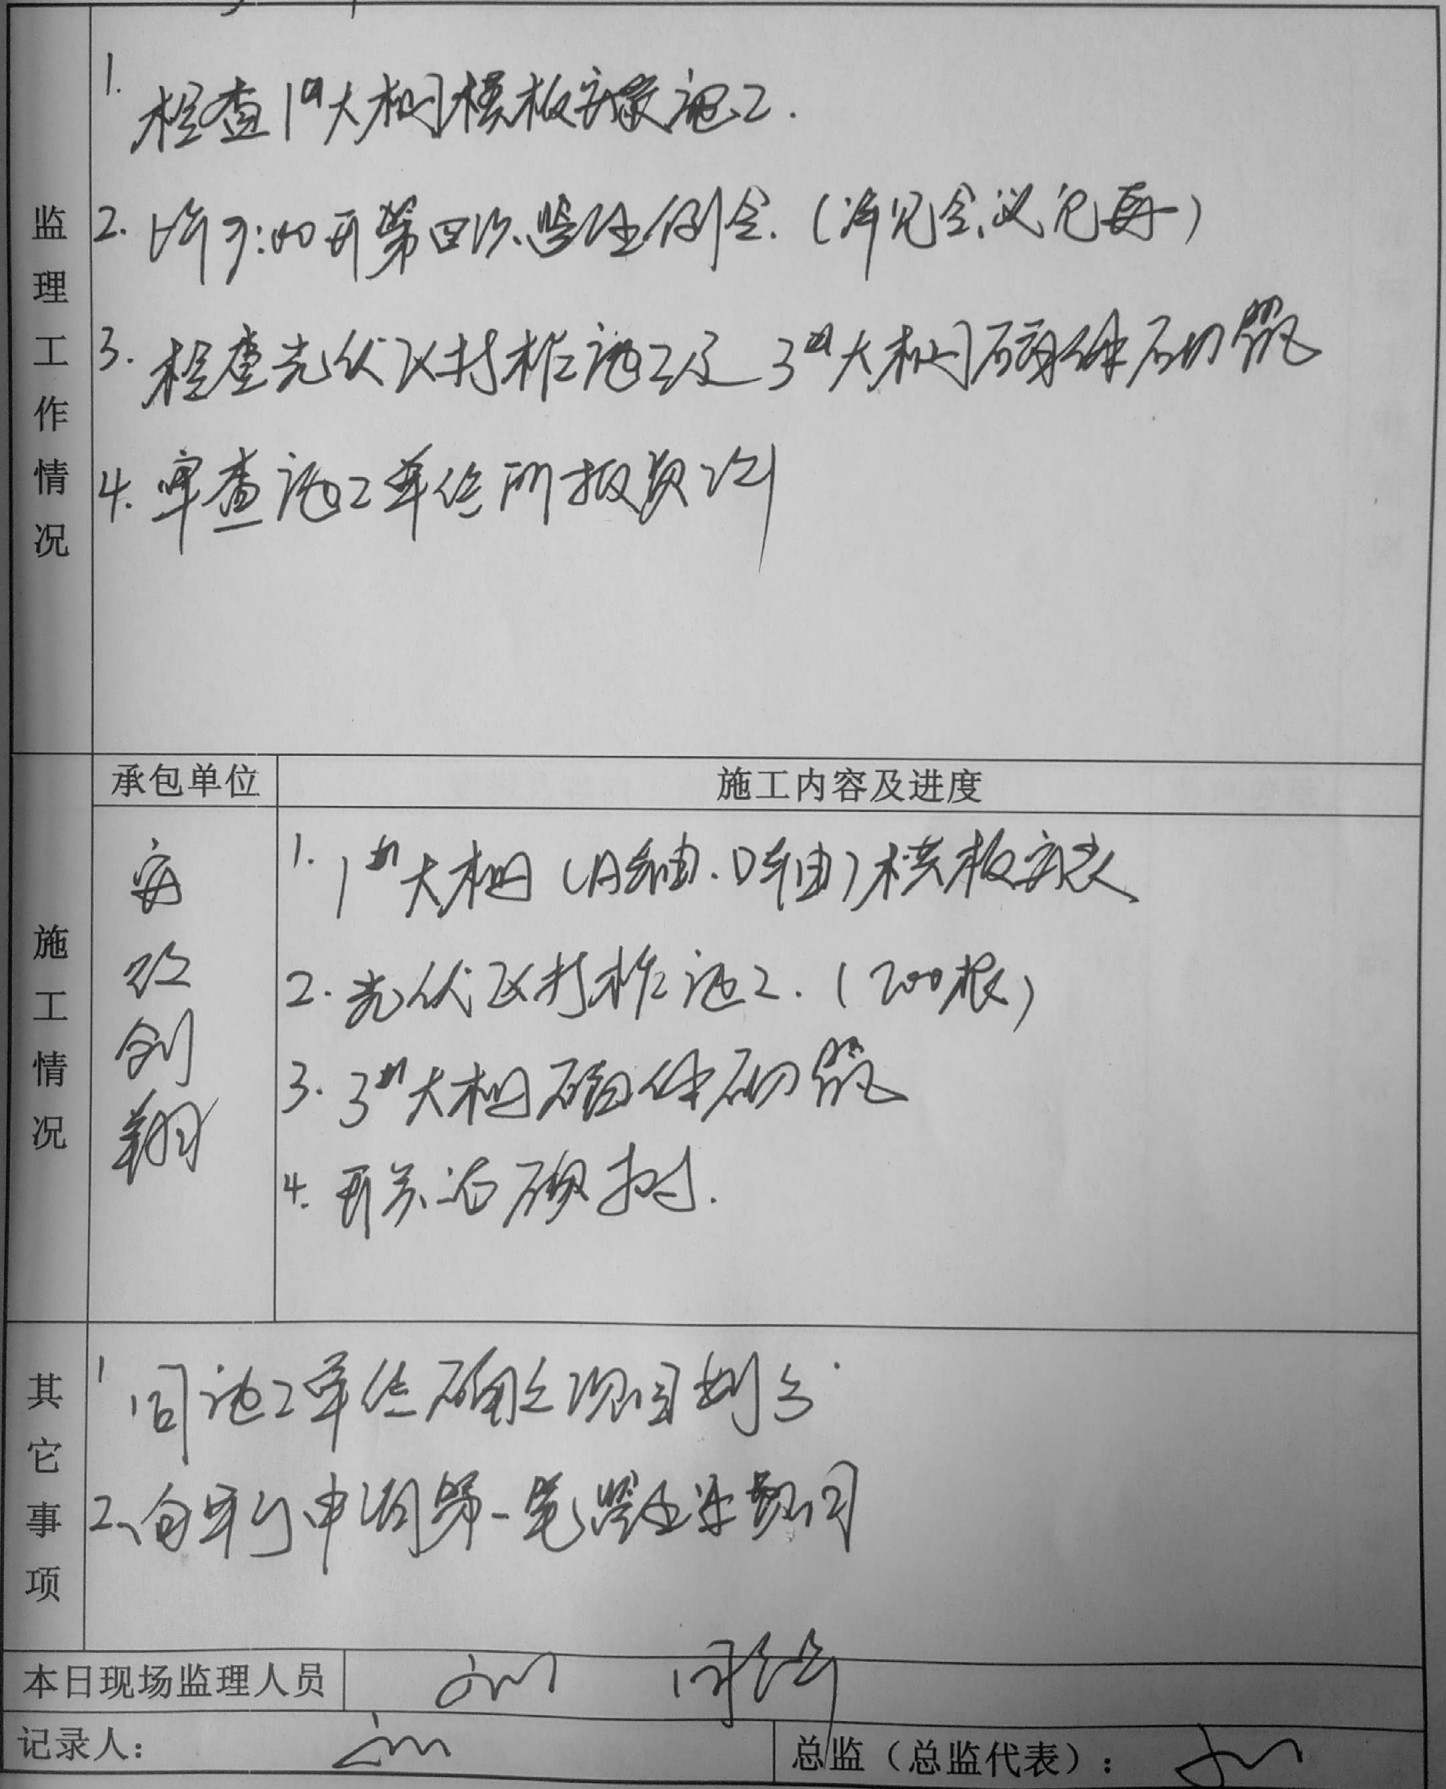 监理工作情况
1. 检查1#大棚模板安装施工.
2. 上午9:00开第四次监理例会.(详见会议纪要)
3. 检查光伏区打桩施工及3#大棚砌体砌筑
4. 审查施工单位所报资料
承包单位
施工内容及进度
施工情况
1. 1#大棚(A轴.D轴)模板安装
2. 光伏区打桩施工.(200根)
3. 3#大棚砌体砌筑
4. 开关站
其它事项
1 同施工单位确定项目划分.
2、向 申请第一笔监理
本日现场监理人员
记录人:
总监(总监代表):